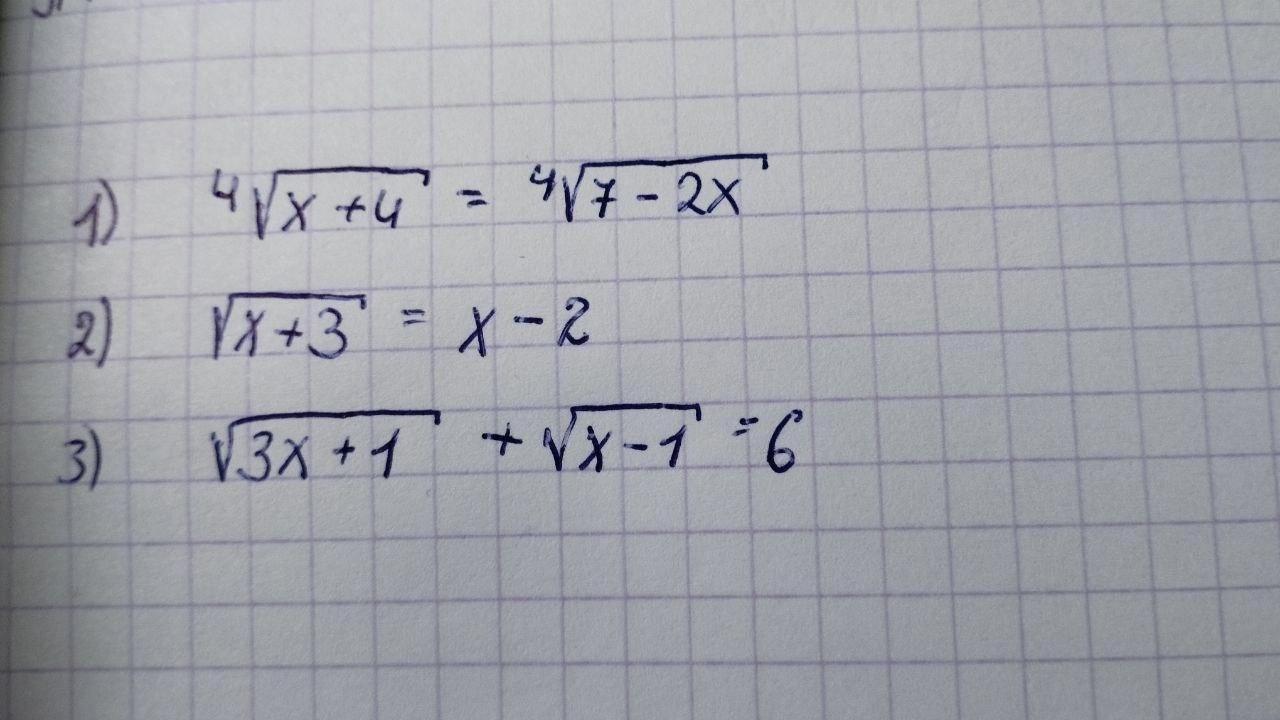 1) ⁴√(x+4) = ⁴√(7-2x)
2) √(x+3) = x-2
3) √(3x+1) + √(x-1) = 6